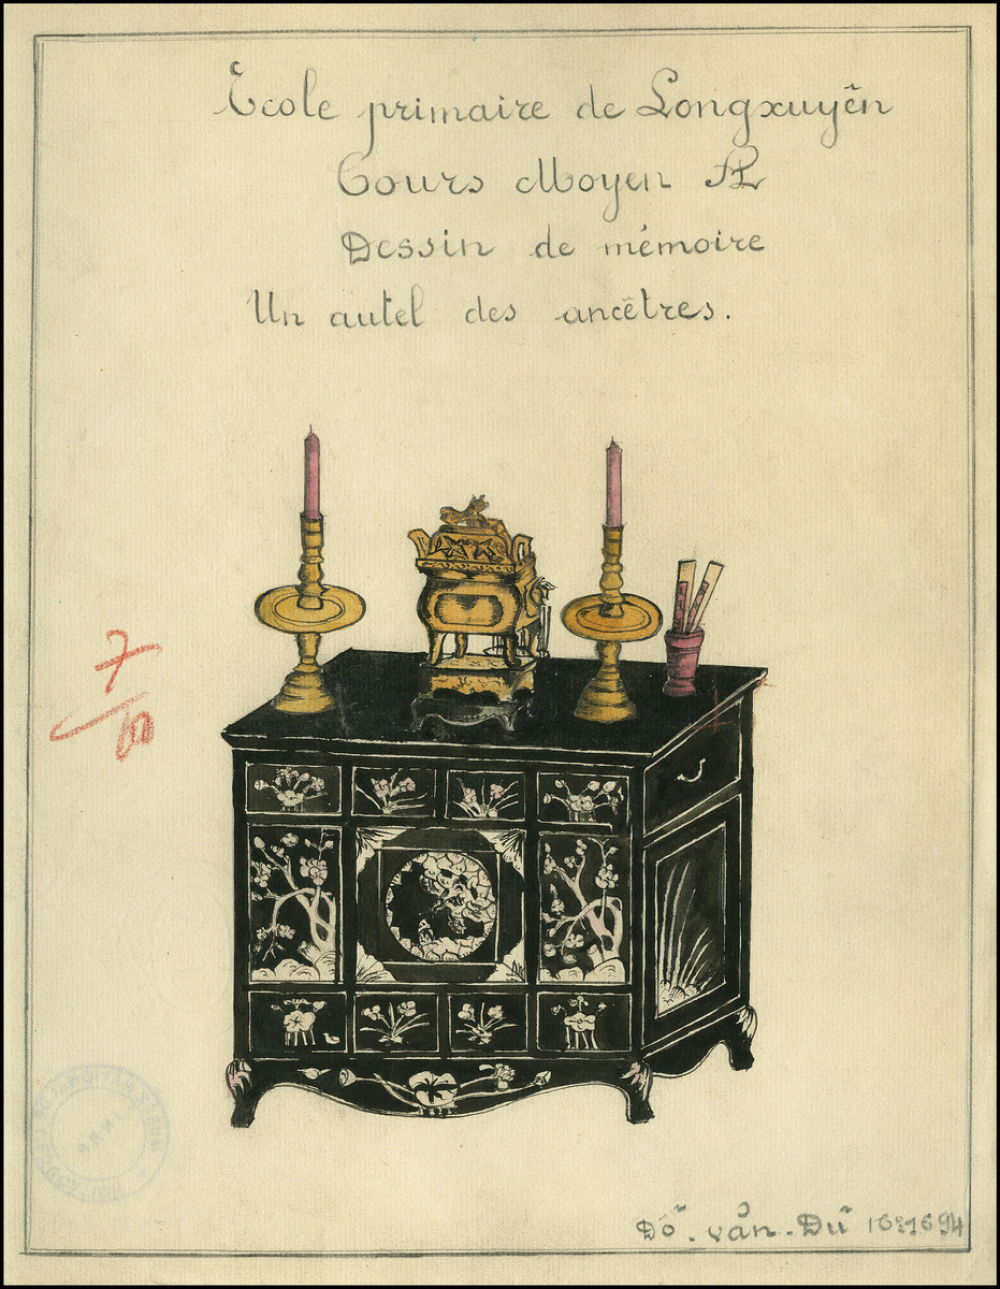 École primaire de Longxuyên
Cours Moyen A
Dessin de mémoire
Un autel des ancêtres.
7
10
Đỗ. văn. Dũ